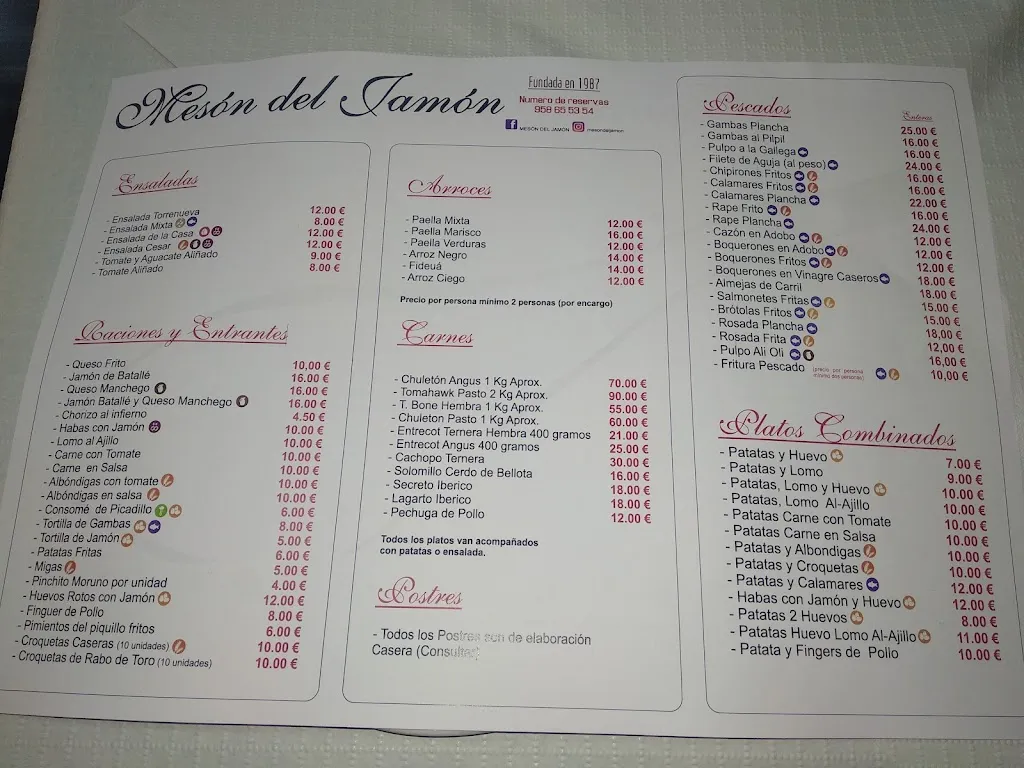 Mesón del Jamón
Fundada en 1987
Numero de reservas
958 65 53 54
MESÓN DEL JAMÓN /mesondeljamon
Ensaladas
- Ensalada Torrenueva 12.00 €
- Ensalada Mixta 8.00 €
- Ensalada de la Casa 12.00 €
- Ensalada Cesar 12.00 €
- Tomate y Aguacate Aliñado 9.00 €
- Tomate Aliñado 8.00 €
Raciones y Entrantes
- Queso Frito 10,00 €
- Jamón de Batallé 16.00 €
- Queso Manchego 16.00 €
- Jamón Batallé y Queso Manchego 16.00 €
- Chorizo al infierno 4.50 €
- Habas con Jamón 10.00 €
- Lomo al Ajillo 10.00 €
- Carne con Tomate 10.00 €
- Carne en Salsa 10.00 €
- Albóndigas con tomate 10.00 €
- Albóndigas en salsa 10.00 €
- Consomé de Picadillo 6.00 €
- Tortilla de Gambas 8.00 €
- Tortilla de Jamón 5.00 €
- Patatas Fritas 6.00 €
- Migas 5.00 €
- Pinchito Moruno por unidad 4.00 €
- Huevos Rotos con Jamón 12.00 €
- Finguer de Pollo 8.00 €
- Pimientos del piquillo fritos 6.00 €
- Croquetas Caseras (10 unidades) 10.00 €
- Croquetas de Rabo de Toro (10 unidades) 10.00 €
Arroces
- Paella Mixta 12.00 €
- Paella Marisco 16.00 €
- Paella Verduras 12.00 €
- Arroz Negro 14.00 €
- Fideuá 14.00 €
- Arroz Ciego 12.00 €
Precio por persona mínimo 2 personas (por encargo)
Carnes
- Chuletón Angus 1 Kg Aprox. 70.00 €
- Tomahawk Pasto 2 Kg Aprox. 90.00 €
- T. Bone Hembra 1 Kg Aprox. 55.00 €
- Chuleton Pasto 1 Kg Aprox. 60.00 €
- Entrecot Ternera Hembra 400 gramos 21.00 €
- Entrecot Angus 400 gramos 25.00 €
- Cachopo Ternera 30.00 €
- Solomillo Cerdo de Bellota 16.00 €
- Secreto Iberico 18.00 €
- Lagarto Iberico 18.00 €
- Pechuga de Pollo 12.00 €
Todos los platos van acompañados
con patatas o ensalada.
Postres
- Todos los Postres son de elaboración
Casera (Consultar)
Pescados
Enteras
- Gambas Plancha 25.00 €
- Gambas al Pilpil 16.00 €
- Pulpo a la Gallega 16.00 €
- Filete de Aguja (al peso) 24.00 €
- Chipirones Fritos 16.00 €
- Calamares Fritos 16.00 €
- Calamares Plancha 22.00 €
- Rape Frito 16.00 €
- Rape Plancha 24.00 €
- Cazón en Adobo 12.00 €
- Boquerones en Adobo 12.00 €
- Boquerones Fritos 12.00 €
- Boquerones en Vinagre Caseros 18.00 €
- Almejas de Carril 18.00 €
- Salmonetes Fritas 15.00 €
- Brótolas Fritos 15.00 €
- Rosada Plancha 18,00 €
- Rosada Frita 12,00 €
- Pulpo Ali Oli 16,00 €
- Fritura Pescado (precio por persona mínimo dos personas) 10,00 €
Platos Combinados
- Patatas y Huevo 7.00 €
- Patatas y Lomo 9.00 €
- Patatas, Lomo y Huevo 10.00 €
- Patatas, Lomo Al-Ajillo 10.00 €
- Patatas Carne con Tomate 10.00 €
- Patatas Carne en Salsa 10.00 €
- Patatas y Albondigas 10.00 €
- Patatas y Croquetas 10.00 €
- Patatas y Calamares 12.00 €
- Habas con Jamón y Huevo 12.00 €
- Patatas 2 Huevos 8.00 €
- Patatas Huevo Lomo Al-Ajillo 11.00 €
- Patata y Fingers de Pollo 10.00 €